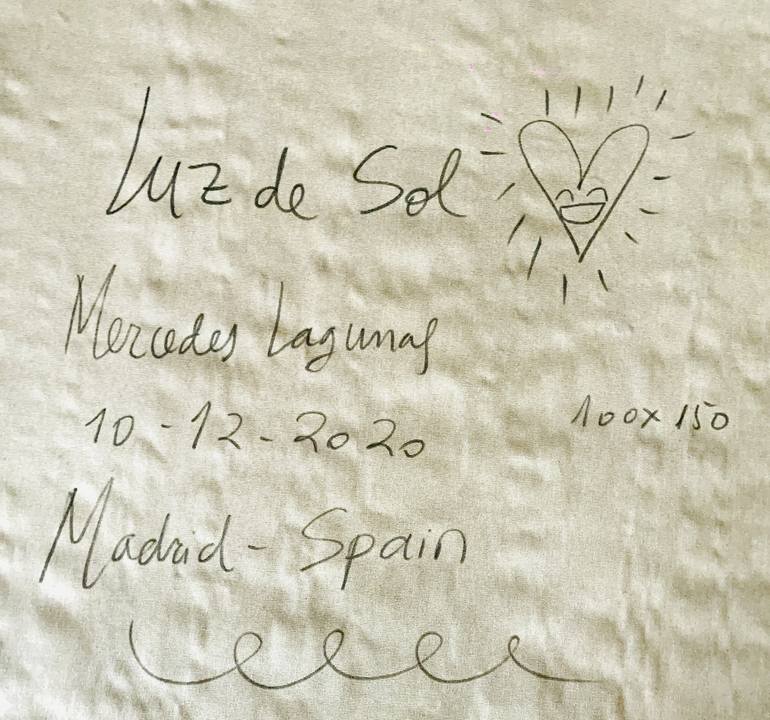 Luz de Sol
Mercedes Lagunas
10-12-2020
100x150
Madrid - Spain